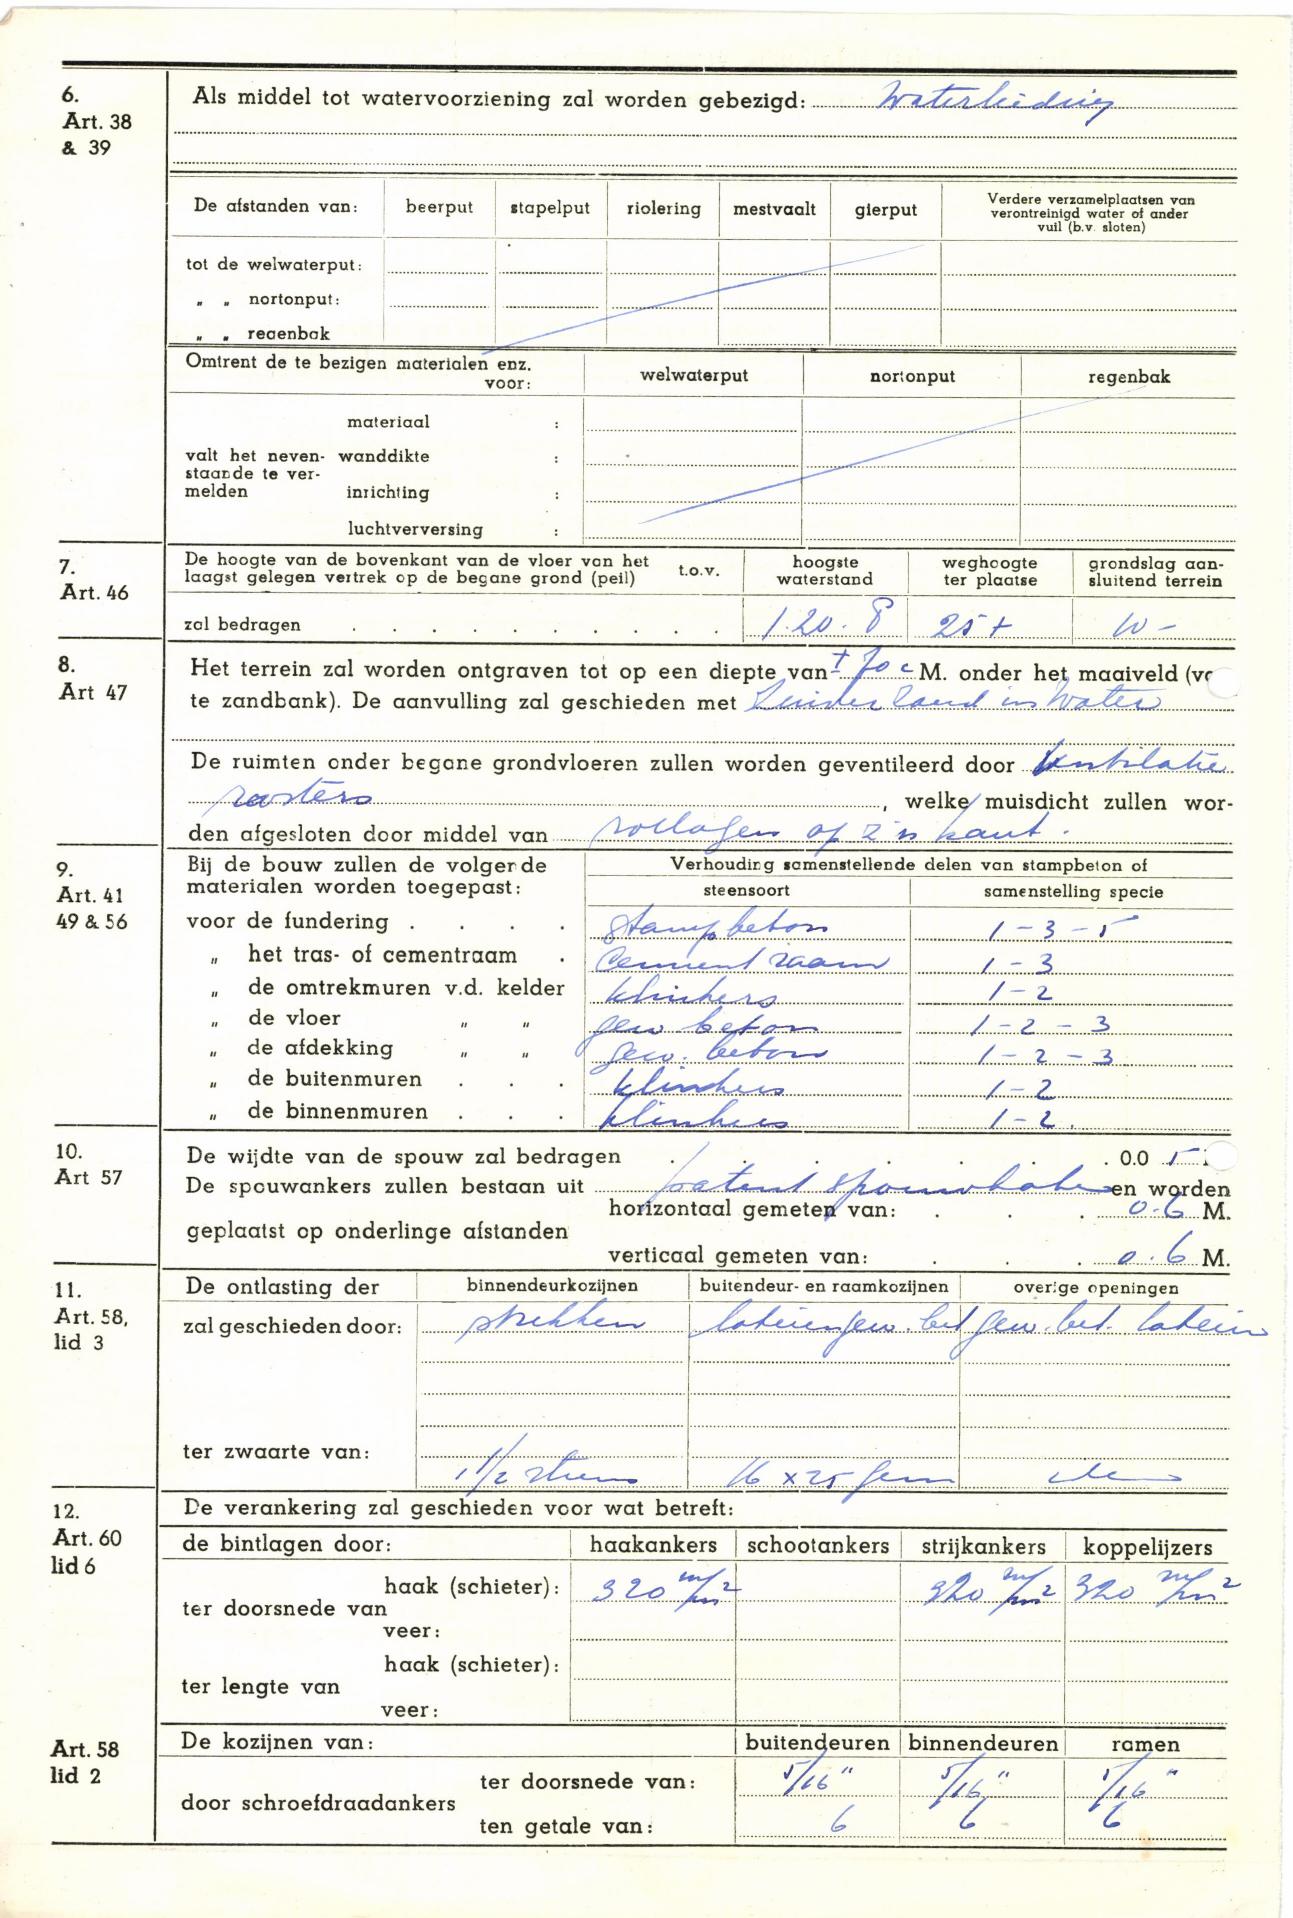 6.
Art. 38
& 39
Als middel tot watervoorziening zal worden gebezigd: Waterleiding
De afstanden van: beerput stapelput riolering mestvaalt gierput Verdere verzamelplaatsen van
verontreinigd water of ander
vuil (b.v. sloten)
tot de welwaterput:
„ „ nortonput:
„ „ regenbak
Omtrent de te bezigen materialen enz.
voor: welwaterput nortonput regenbak
materiaal :
valt het neven- wanddikte :
staande te ver-
melden inrichting :
luchtverversing :
7.
Art. 46
De hoogte van de bovenkant van de vloer van het
laagst gelegen vertrek op de begane grond (peil) t.o.v. hoogste
waterstand weghoogte
ter plaatse grondslag aan-
sluitend terrein
zal bedragen . . . . . . . . . 1.20. P 25+ 10 -
8.
Art 47
Het terrein zal worden ontgraven tot op een diepte van ± 70 c M. onder het maaiveld (vo
te zandbank). De aanvulling zal geschieden met zuiver zand in water
De ruimten onder begane grondvloeren zullen worden geventileerd door ventilatie
roosters , welke muisdicht zullen wor-
den afgesloten door middel van rollagen op z'n kant.
9.
Art. 41
49 & 56
Bij de bouw zullen de volgende
materialen worden toegepast:
Verhouding samenstellende delen van stampbeton of
steensoort samenstelling specie
voor de fundering . . . . stampbeton 1 - 3 - 5
„ het tras- of cementraam . cement raam 1 - 3
„ de omtrekmuren v.d. kelder klinkers 1 - 2
„ de vloer „ „ gew beton 1 - 2 - 3
„ de afdekking „ „ gew. beton 1 - 2 - 3
„ de buitenmuren . . . klinkers 1 - 2
„ de binnenmuren . . . klinkers 1 - 2.
10.
Art 57
De wijdte van de spouw zal bedragen . . . . . . . 0.0 5
De spouwankers zullen bestaan uit patent spouwhaken en worden
horizontaal gemeten van: . . . 0.6 M.
geplaatst op onderlinge afstanden
verticaal gemeten van: . . . 0.6 M.
11.
Art. 58,
lid 3
De ontlasting der binnendeurkozijnen buitendeur- en raamkozijnen overige openingen
zal geschieden door: strekken lateien gew. bet gew. bet. latein
ter zwaarte van: 1 1/2 steens 16 x 25 gew idem
12.
Art. 60
lid 6
De verankering zal geschieden voor wat betreft:
de bintlagen door: haakankers schootankers strijkankers koppelijzers
haak (schieter): 320 m/m² 320 m/m² 320 m/m²
ter doorsnede van
veer:
haak (schieter):
ter lengte van
veer:
Art. 58
lid 2
De kozijnen van: buitendeuren binnendeuren ramen
ter doorsnede van: 5/16" 5/16" 5/16"
door schroefdraadankers
ten getale van: 6 6 6